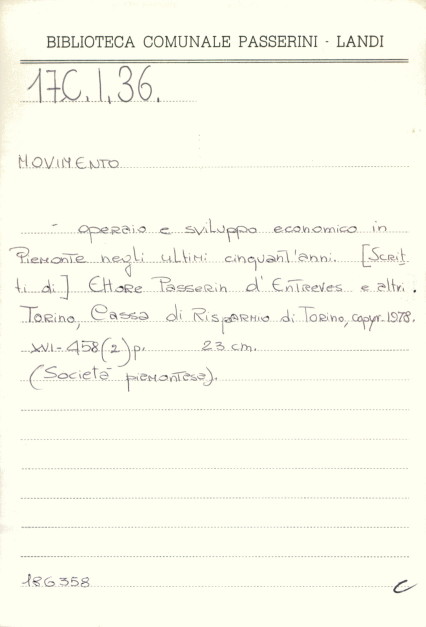 BIBLIOTECA COMUNALE PASSERINI - LANDI
17C.I.36.
MOVIMENTO
- operaio e sviluppo economico in
Piemonte negli ultimi cinquant'anni. [Scrit
ti di] Ettore Passerin d'Entreves e altri.
Torino, Cassa di Risparmio di Torino, copyr. 1978.
XVI-458(2)p. 23 cm.
(Società piemontese).
186358 C